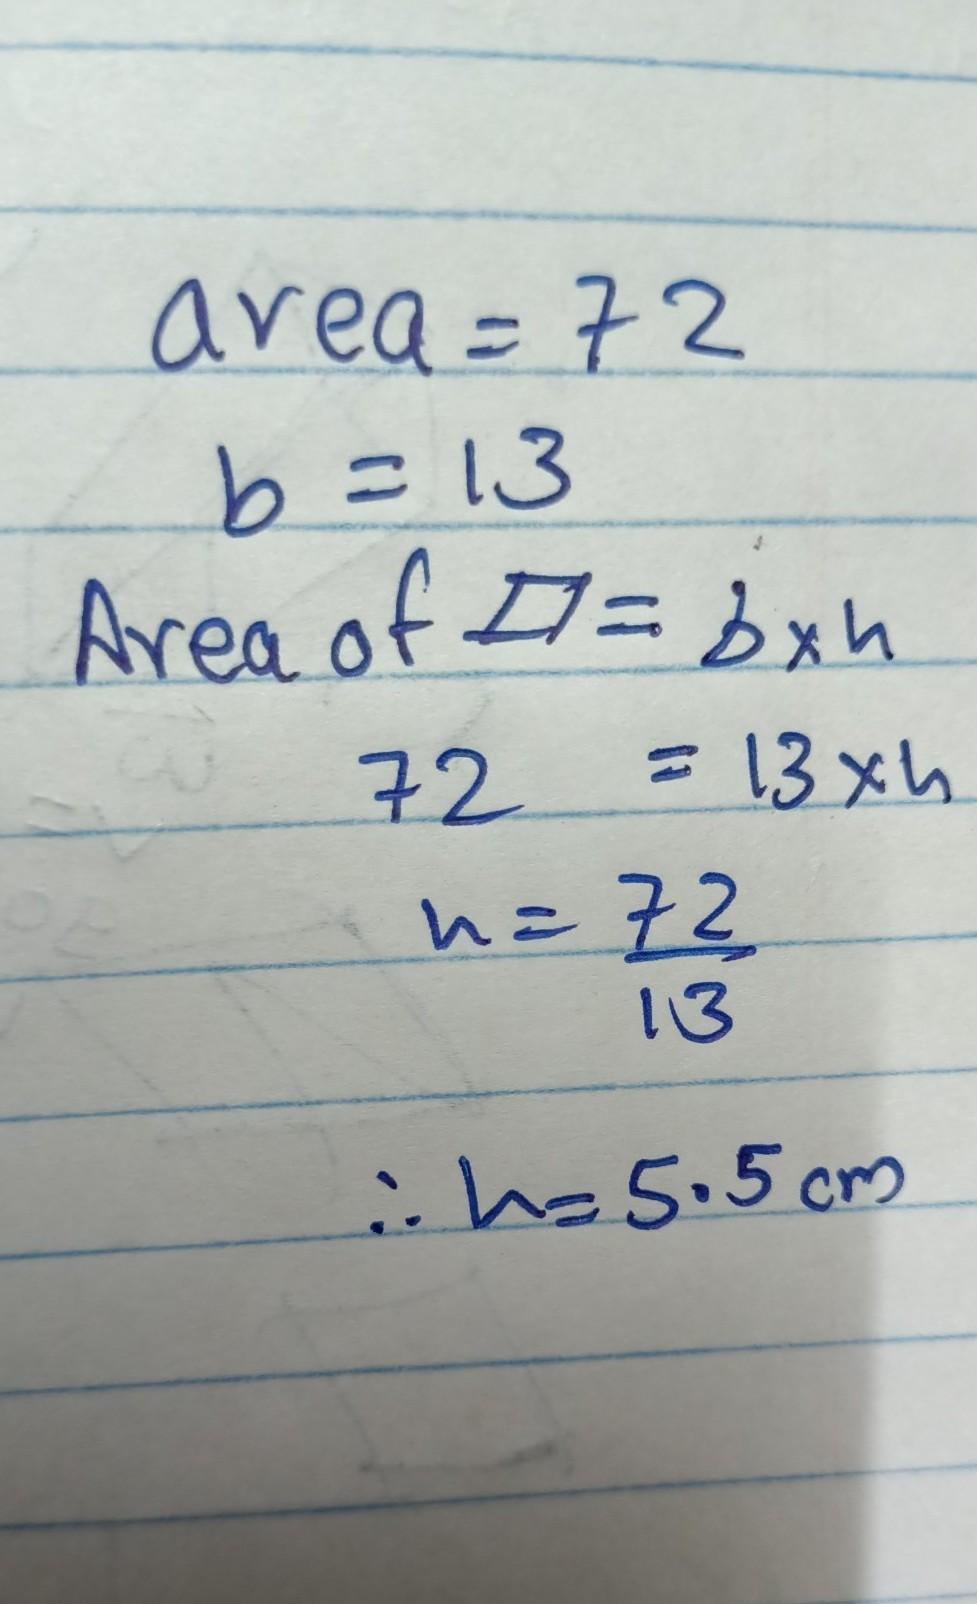 area = 72
b = 13
Area of ▱ = b x h
72 = 13 x h
h = 72
13
∴ h = 5.5 cm